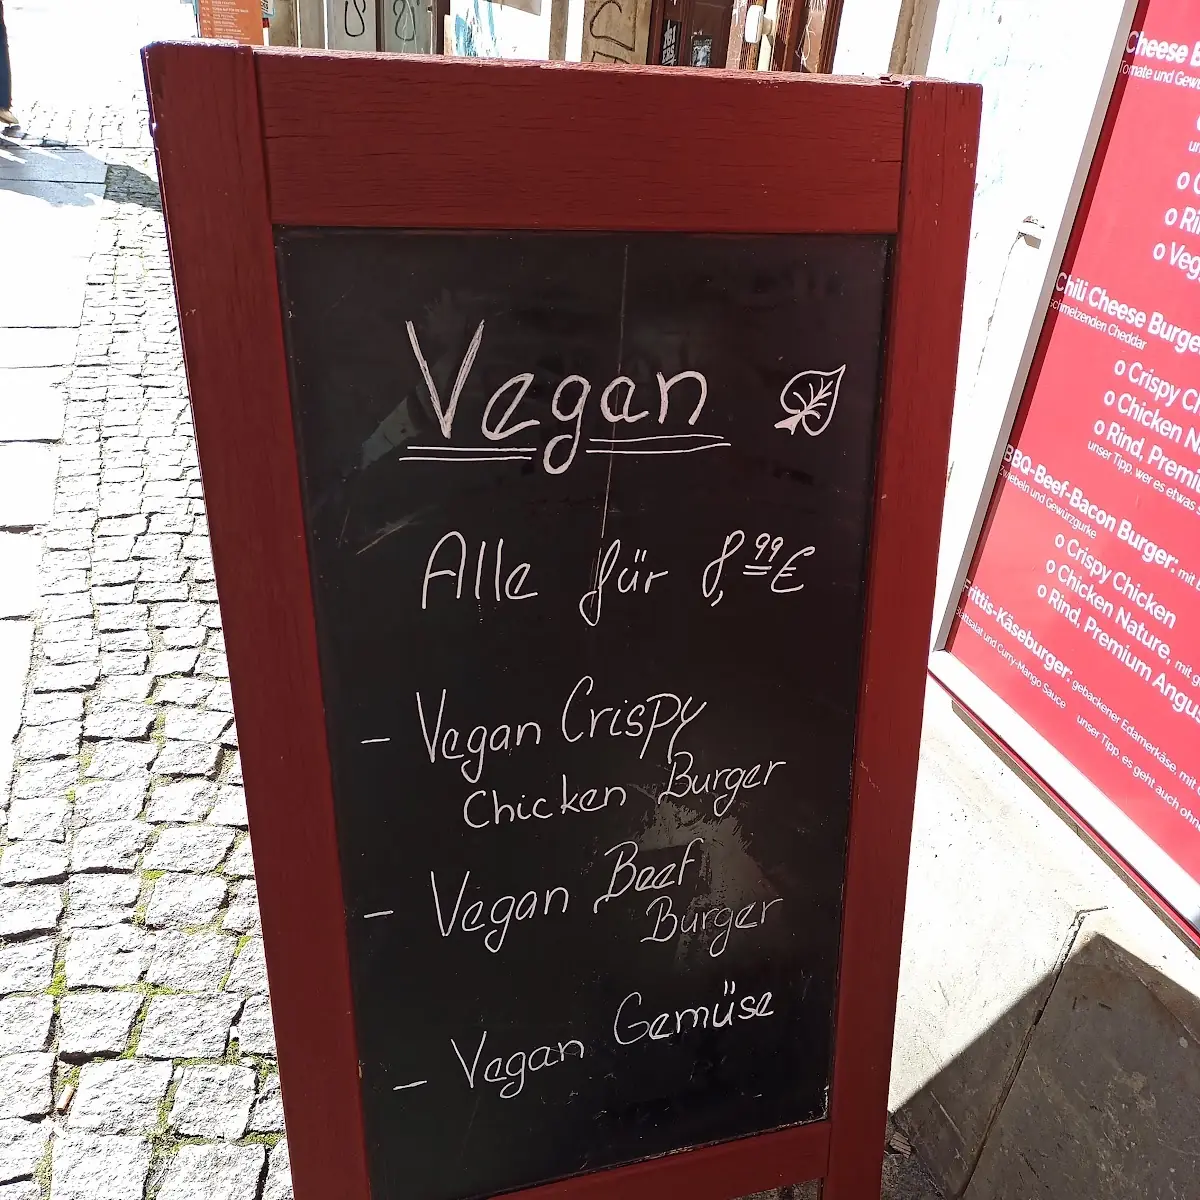 Vegan
Alle für 8,99€
- Vegan Crispy
Chicken Burger
- Vegan Beef
Burger
- Vegan Gemüse
Cheese
Tomate und
Chili Cheese
schmelzenden Cheddar
o Crispy
o Chicken
o Rind,
unser Tipp, wer es etwas
BBQ-Beef-Bacon Burger: mit
Zwiebeln und Gewürzgurke
o Crispy Chicken
o Chicken Nature, mit
o Rind, Premium
Frittis-Käseburger: gebackener Edamerkäse, mit
Blattsalat und Curry-Mango Sauce
unser Tipp, es geht auch